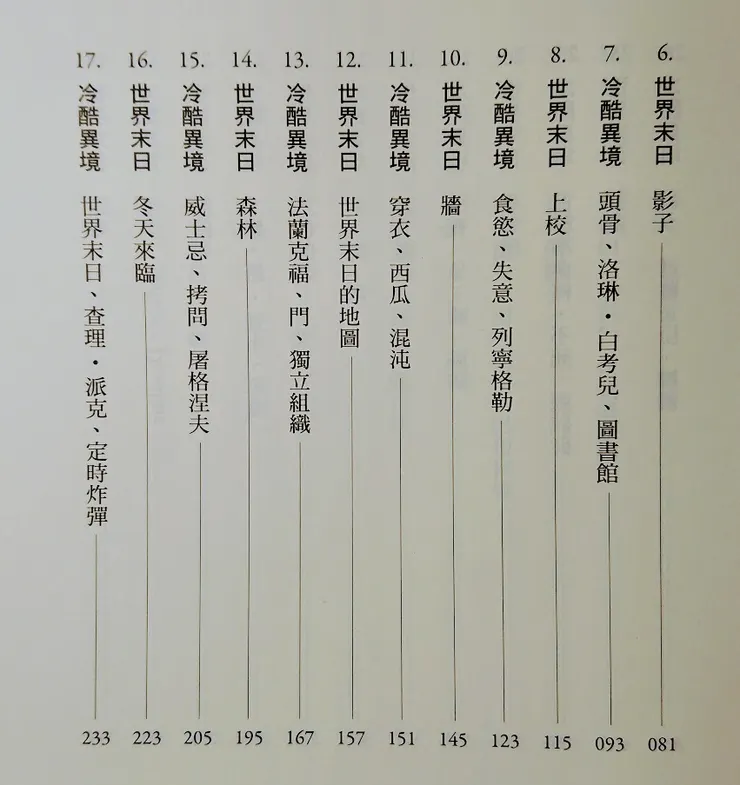 6. 世界末日 影子 081
7. 冷酷異境 頭骨、洛琳・白考兒、圖書館 093
8. 世界末日 上校 115
9. 冷酷異境 食慾、失意、列寧格勒 123
10. 世界末日 牆 145
11. 冷酷異境 穿衣、西瓜、混沌 151
12. 世界末日 世界末日的地圖 157
13. 冷酷異境 法蘭克福、門、獨立組織 167
14. 世界末日 森林 195
15. 冷酷異境 威士忌、拷問、屠格涅夫 205
16. 世界末日 冬天來臨 223
17. 冷酷異境 世界末日、查理・派克、定時炸彈 233